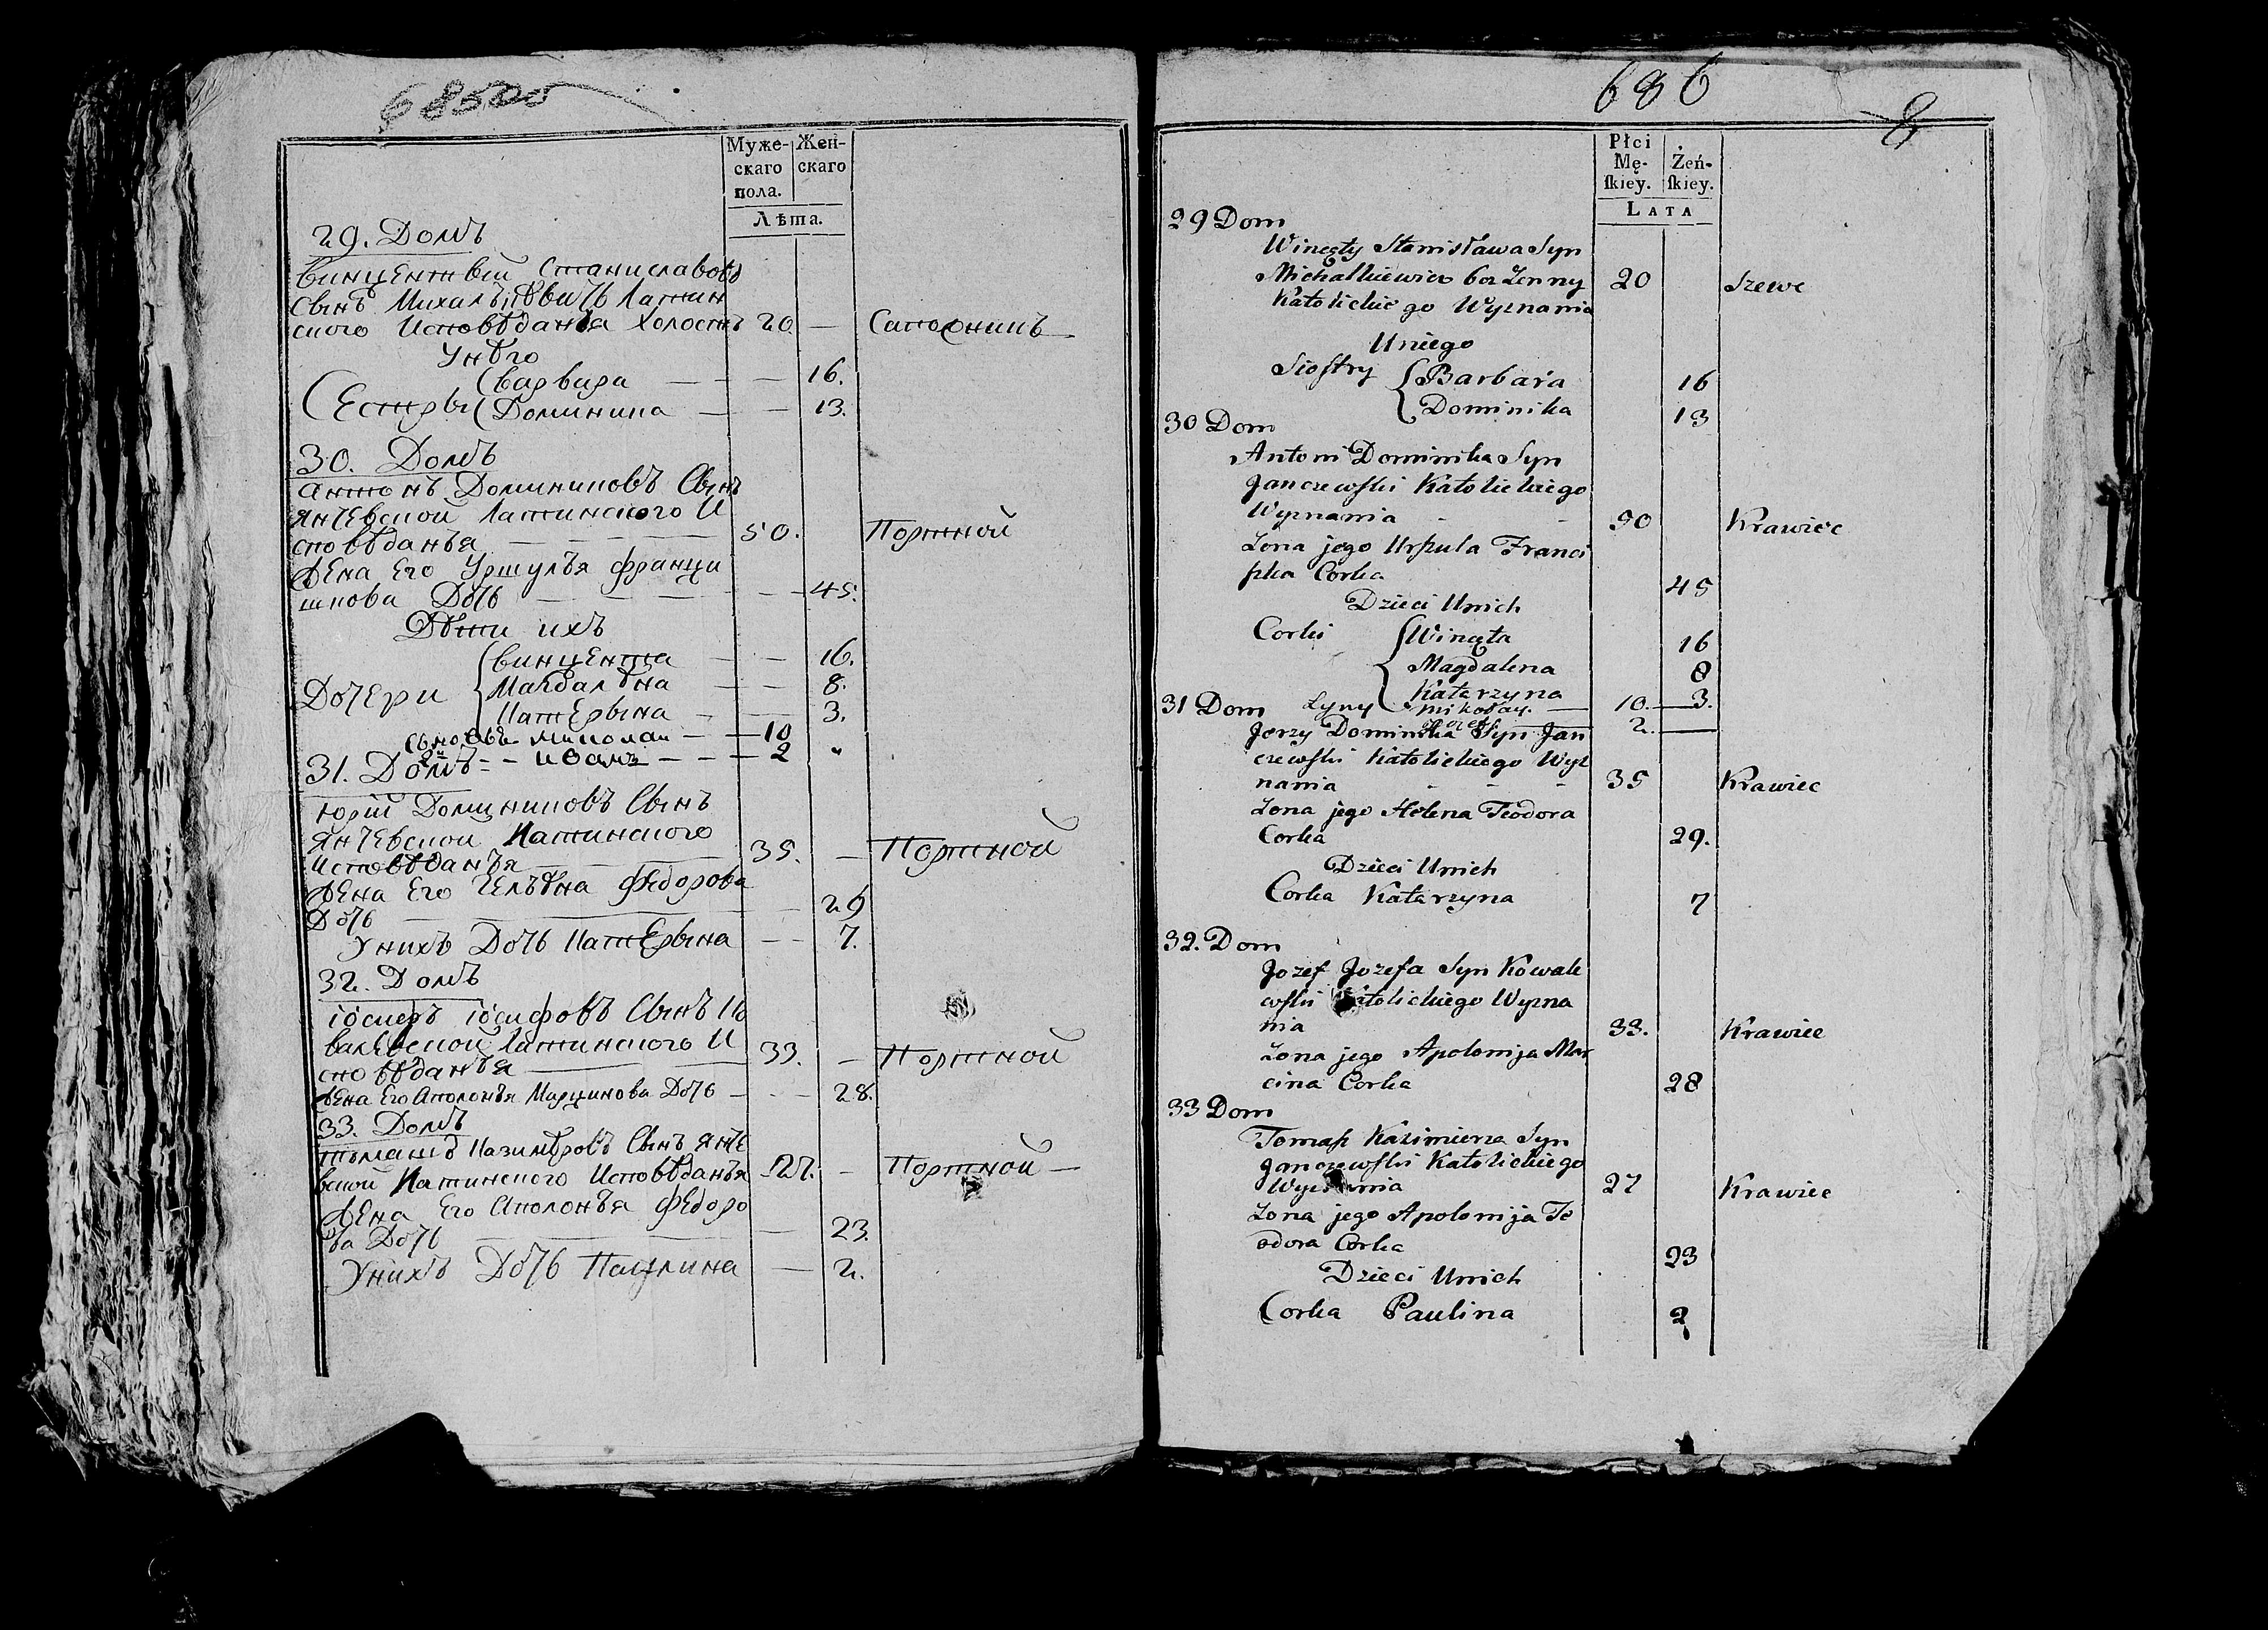 685об
Муже-
скаго
пола.
Жен-
скаго
Лѣта.
29. Домъ
Винцентвей Станиславовъ
Сынъ Михалькѣвичь Латин
ского Исповѣданья Холостъ 20. — Сапожникъ
Унѣго
Сестры Варвара — 16.
Доминика — 13.
30. Домъ
Антонъ Доминиковъ Сынъ
Янчевской Латинского И
споведанья 50. Портной
Жена Его Уршулья Франци
шкова Дочь 45.
Дѣти ихъ
Дочери Винцента — 16.
Магдалѣна — 8.
Катерына — 3.
Сыновъ Николай — 10
2й - - Иванъ - - - 2 "
31. Домъ
Юрій Доминиковъ Сынъ
Янчевской Латинского
Исповѣданья 35. — Портной
Жена Его Гельѣна Федорова
Дочь 29
Унихъ Дочь Катерына — 7.
32. Домъ
Іосифъ Іосифовъ Сынъ Ко
валевской Латинского И
сповѣданья 33. — Портной
Жена Его Аполонья Марцинова Дочь — 28.
33. Домъ
Тымашъ Казимѣровъ Сынъ Янче
вской Латинского Исповѣданья 27. — Портной —
Жена Его Аполонья Федоро
ва Дочь 23.
Унихъ Дочь Паулина — 2.
686
8
Płci
Mę-
skiey.
Żeń-
skiey.
LATA
29 Dom
Wincęty Stanisława Syn
Michalkiewicz bez Zenny 20 Szewc
Katolickiego Wyznania
Uniego
Siostry Barbara 16
Dominika 13
30 Dom
Antoni Dominika Syn
Janczewski Katolickiego
Wyznania - - 50 Krawiec
Zona jego Urszula Franci
szka Corka 45
Dzieci Unich
Corki Wincęta 16
Magdalena 8
Katarzyna 3.
31 Dom Syny Mikołay. — 10.
2.
Jerzy Dominika Syn Jan
czewski Katolickiego Wyz
nania - - - 35 Krawiec
Zona jego Helena Teodora
Corka 29.
Dzieci Unich
Corka Katarzyna 7
32. Dom
Jozef Jozefa Syn Kowale
wski Katolickiego Wyzna
nia 33. Krawiec
Zona jego Apolonija Mar
cina Corka 28
33 Dom
Tomasz Kazimierza Syn
Janczewski Katolickiego
Wyznania 27 Krawiec
Zona jego Apolonija Te
odora Corka 23
Dzieci Unich
Corka Paulina 2